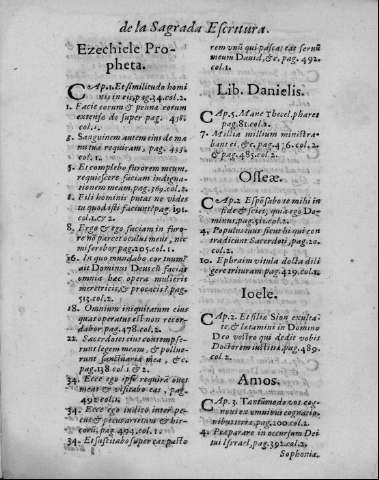 de la Sagrada Escritura.
Ezechiele Pro-
pheta.
CAp. 1. Et similitudo homi
nis in eis, pag. 34. col. 2.
1. Facie eorum & penne eorum
extense de super pag. 438.
col. 1.
3. Sanguinem autem eius de ma
nu tua requiram, pag. 433.
col. 1.
5. Et complebo furorem meum,
requiescere faciam indigna
tionem meam. pag. 769. col. 2.
8. Fili hominis putas ne vides
tu quod isti faciunt? pag. 191.
col. 1. & 2.
8. Ergo & ego faciam in furo-
re nõ parcet oculus meus, nec
miserebor pag. 205. col. 1.
16. In quo mundabo cor tuum?
ait Dominus Deus cũ facias
omnia hæc opera mulieris
meretricis, & procacis? pag.
513. col. 2.
18. Omnium iniquitatum eius
quas operatus est non recor-
dabor pag. 478. col. 2.
22. Sacerdotes eius contempse-
runt legem meam, & pollue-
runt sanctuaria mea, &c.
pag. 138. col. 1. & 2.
34. Ecce ego ipse requirã oues
meas & visitabo eas, pag.
492. col. 1.
34. Ecce ego iudico inter pe-
cus & pecus arietum & hir-
corũ. pag. 494. col. 1.
34. Et suscitabo super eas pasto
rem vnũ qui pascat eas seruũ
meum Dauid, &c. pag. 492.
col. 1.
Lib. Danielis.
CAp. 5. Mane Thecel. phares
pag. 81. col. 2.
7. Millia millium ministra-
bant ei, &c. pag. 476. col. 2.
& pag. 485. col. 2.
Osseæ.
CAp. 2 Espõsabo te mihi in
fide & scies, quia ego Do-
minus. pag. 511. col. 2.
4. Populus tuus sicut hi qui con
tradicunt Sacerdoti, pag. 20.
col. 2.
10. Ephraim vitula docta dili
gere trituram pag. 429. col. 1.
Ioele.
CAp. 2. Et filiæ Sion exulta-
te, & lætamini in Domino
Deo vestro qui dedit vobis
Doctorem iustitiæ, pag. 489.
col. 2.
Amos.
CAp. 3. Tantũmodo vos cog-
noui ex omnibus cognatio-
nibus terræ, pag. 200. col. 2.
4. Præparare in occursum Dei
tui Israel, pag. 392. col. 2.
Sophonia.